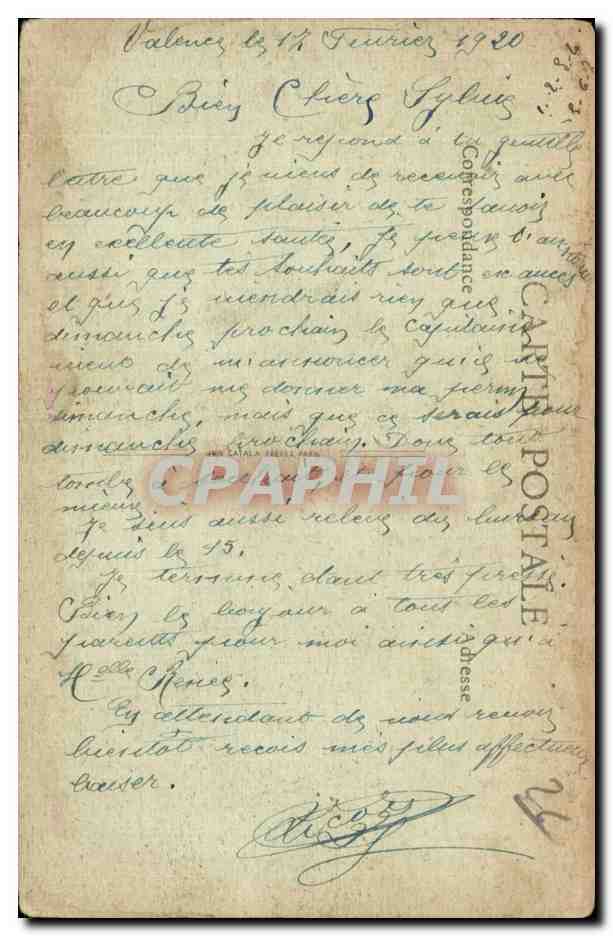 Valence le 17 Fevrier 1920
Bien Chère Sylvie
Je repond à ta gentille
lettre que je viens de recevoir avec
beaucoup de plaisir de te savoir
en excellente santée, Je pense
aussi que tes souhaits sont exaucés
et que Je viendrais rien que
dimanche prochain le Capitaine
vient de m'annoncer qu'il ne
pouvait me donner ma perm
dimanche, mais que ce serais pour
dimanche prochain. Donc tout
tombe à pour le
mieux
Je suis aussi relevé du bureau
depuis le 15.
Je termine étant très pressé
Bien le bonjour à tous les
parents pour moi ainsi qu'à
Melle Renée.
En attendant de nous revoir
bientôt recois mes plus affectueux
baiser.
CARTE POSTALE
Correspondance
Adresse
CATALA FRERES PARIS
CPARPHIL